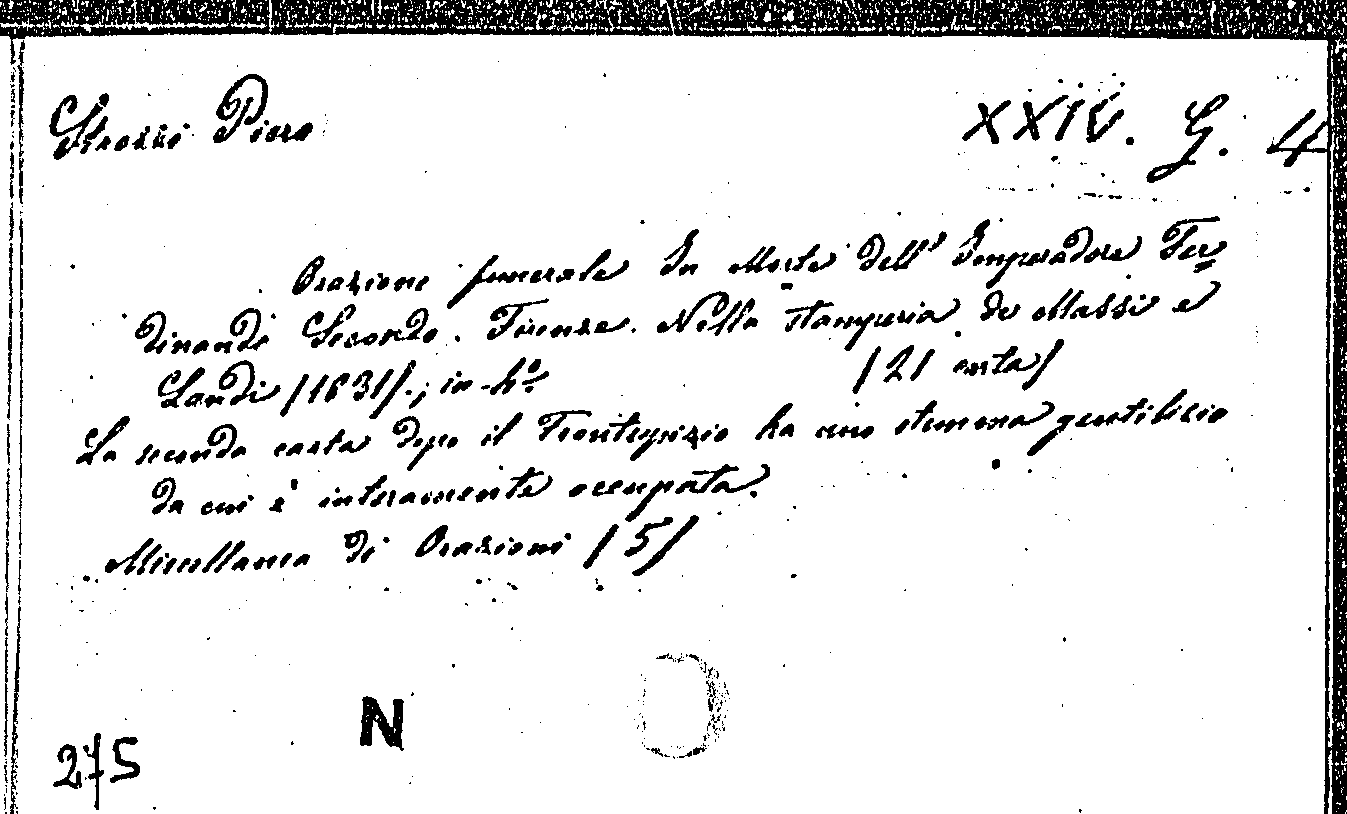 Strozzi Piero
XXIV. G. 4
Orazione funerale In Morte dell' Imperadore Fer=
dinando Secondo. Firenze. Nella stamperia de Massi e
Landi /1631/.; in-4º.
/21 carta/
La seconda carta dopo il Frontespizio ha uno stemma gentilizio
da cui è interamente occupata.
Miscellanea di Orazioni /5/
N
275